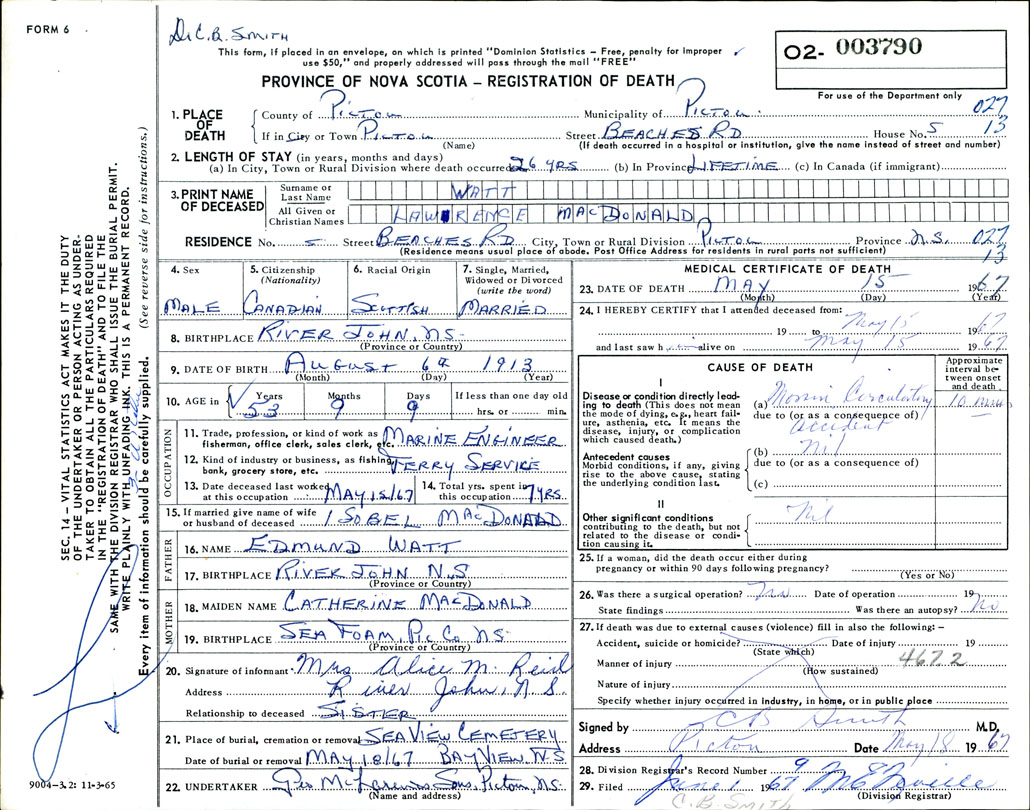 FORM 6
Dr. C.B. SMITH
This form, if placed in an envelope, on which is printed "Dominion Statistics – Free, penalty for improper
use $50," and properly addressed will pass through the mail "FREE"
O2- 003790
For use of the Department only
PROVINCE OF NOVA SCOTIA – REGISTRATION OF DEATH
1. PLACE OF DEATH
County of PICTOU Municipality of PICTOU 027
If in City or Town PICTOU Street BEACHES RD House No. 5 13
(Name) (If death occurred in a hospital or institution, give the name instead of street and number)
2. LENGTH OF STAY (in years, months and days)
(a) In City, Town or Rural Division where death occurred 26 YRS (b) In Province LIFETIME (c) In Canada (if immigrant)
3. PRINT NAME OF DECEASED
Surname or Last Name WATT
All Given or Christian Names LAWRENCE MACDONALD
RESIDENCE No. 5 Street BEACHES RD City, Town or Rural Division PICTOU Province N.S. 027
(Residence means usual place of abode. Post Office Address for residents in rural parts not sufficient) 13
4. Sex MALE
5. Citizenship (Nationality) CANADIAN
6. Racial Origin SCOTTISH
7. Single, Married, Widowed or Divorced (write the word) MARRIED
8. BIRTHPLACE RIVER JOHN, N.S.
(Province or Country)
9. DATE OF BIRTH AUGUST 6th 1913
(Month) (Day) (Year)
10. AGE in Years 53 Months 9 Days 9 If less than one day old
hrs. or min.
OCCUPATION
11. Trade, profession, or kind of work as fisherman, office clerk, sales clerk, etc. MARINE ENGINEER
12. Kind of industry or business, as fishing, bank, grocery store, etc. FERRY SERVICE
13. Date deceased last worked at this occupation MAY 15/67 14. Total yrs. spent in this occupation 7 YRS
15. If married give name of wife or husband of deceased ISOBEL MACDONALD
FATHER
16. NAME EDMUND WATT
17. BIRTHPLACE RIVER JOHN N.S
(Province or Country)
MOTHER
18. MAIDEN NAME CATHERINE MACDONALD
19. BIRTHPLACE SEA FOAM, PIC CO N.S.
(Province or Country)
20. Signature of informant Mrs Alice M. Reid
Address River John, N.S.
Relationship to deceased SISTER
21. Place of burial, cremation or removal SEAVIEW CEMETERY
Date of burial or removal MAY 18/67 BAYVIEW, N.S
22. UNDERTAKER Pictou, N.S.
(Name and address)
MEDICAL CERTIFICATE OF DEATH
23. DATE OF DEATH MAY 15 1967
(Month) (Day) (Year)
24. I HEREBY CERTIFY that I attended deceased from:
19 to May 15 1967
and last saw h alive on May 15 1967
CAUSE OF DEATH
Approximate interval between onset and death
I
Disease or condition directly leading to death (This does not mean the mode of dying, e.g., heart failure, asthenia, etc. It means the disease, injury, or complication which caused death.)
(a) Circulatory 10
due to (or as a consequence of)
accident
Antecedent causes
Morbid conditions, if any, giving rise to the above cause, stating the underlying condition last.
(b) Nil
due to (or as a consequence of)
(c)
II
Other significant conditions contributing to the death, but not related to the disease or condition causing it.
Nil
25. If a woman, did the death occur either during
pregnancy or within 90 days following pregnancy?
(Yes or No)
26. Was there a surgical operation? No Date of operation 19
State findings Was there an autopsy? No
27. If death was due to external causes (violence) fill in also the following: –
Accident, suicide or homicide? Date of injury 19
(State which)
Manner of injury 467.2
(How sustained)
Nature of injury
Specify whether injury occurred in Industry, in home, or in public place
Signed by CB Smith M.D.
Address Pictou Date May 18 1967
28. Division Registrar's Record Number 9
29. Filed June 1 1967
(Division Registrar)
C.B. SMITH
SEC. 14 – VITAL STATISTICS ACT MAKES IT THE DUTY
OF THE UNDERTAKER OR PERSON ACTING AS UNDER-
TAKER TO OBTAIN ALL THE PARTICULARS REQUIRED
IN THE "REGISTRATION OF DEATH" AND TO FILE THE
SAME WITH THE DIVISION REGISTRAR WHO SHALL ISSUE THE BURIAL PERMIT.
WRITE PLAINLY WITH UNFADING INK. THIS IS A PERMANENT RECORD.
Every item of information should be carefully supplied. (See reverse side for instructions.)
9004-3.2: 11-3-65